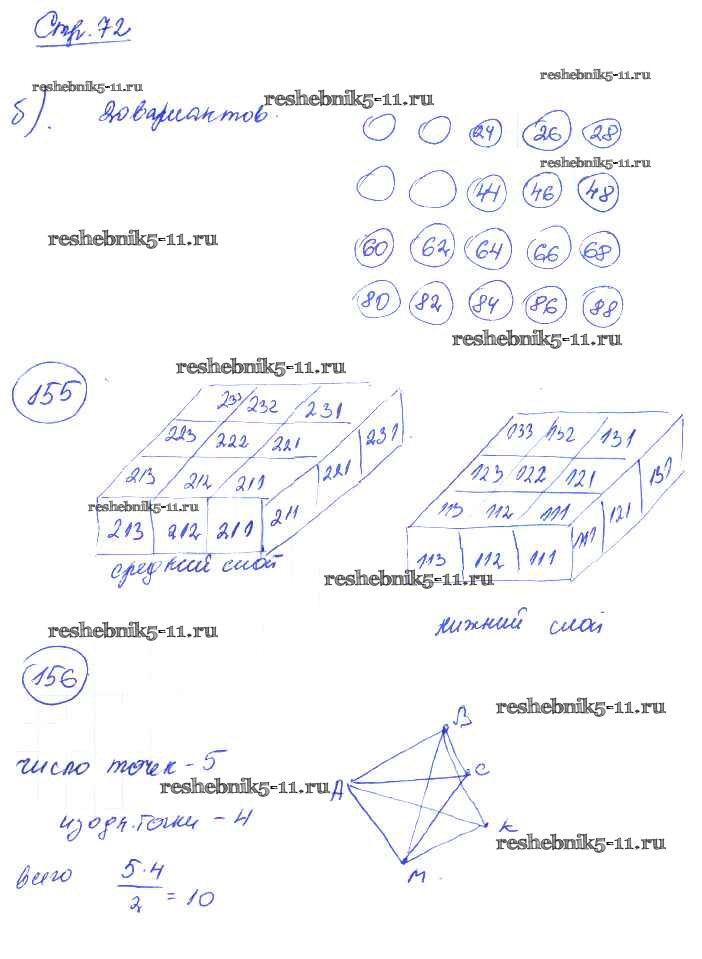 Стр. 72
reshebnik5-11.ru
reshebnik5-11.ru
reshebnik5-11.ru
б). 20 вариантов.
24 26 28
reshebnik5-11.ru
44 46 48
reshebnik5-11.ru
60 62 64 66 68
80 82 84 86 88
reshebnik5-11.ru
reshebnik5-11.ru
155
233 232 231
223 222 221
213 212 211
213 212 211 211 221 231
reshebnik5-11.ru
средний слой
133 132 131
123 122 121
113 112 111
113 112 111 111 121 131
reshebnik5-11.ru
нижний слой
reshebnik5-11.ru
156
reshebnik5-11.ru
число точек - 5
reshebnik5-11.ru
из одн. точки - 4
всего 5·4
2 = 10
B
A C
K
M
reshebnik5-11.ru